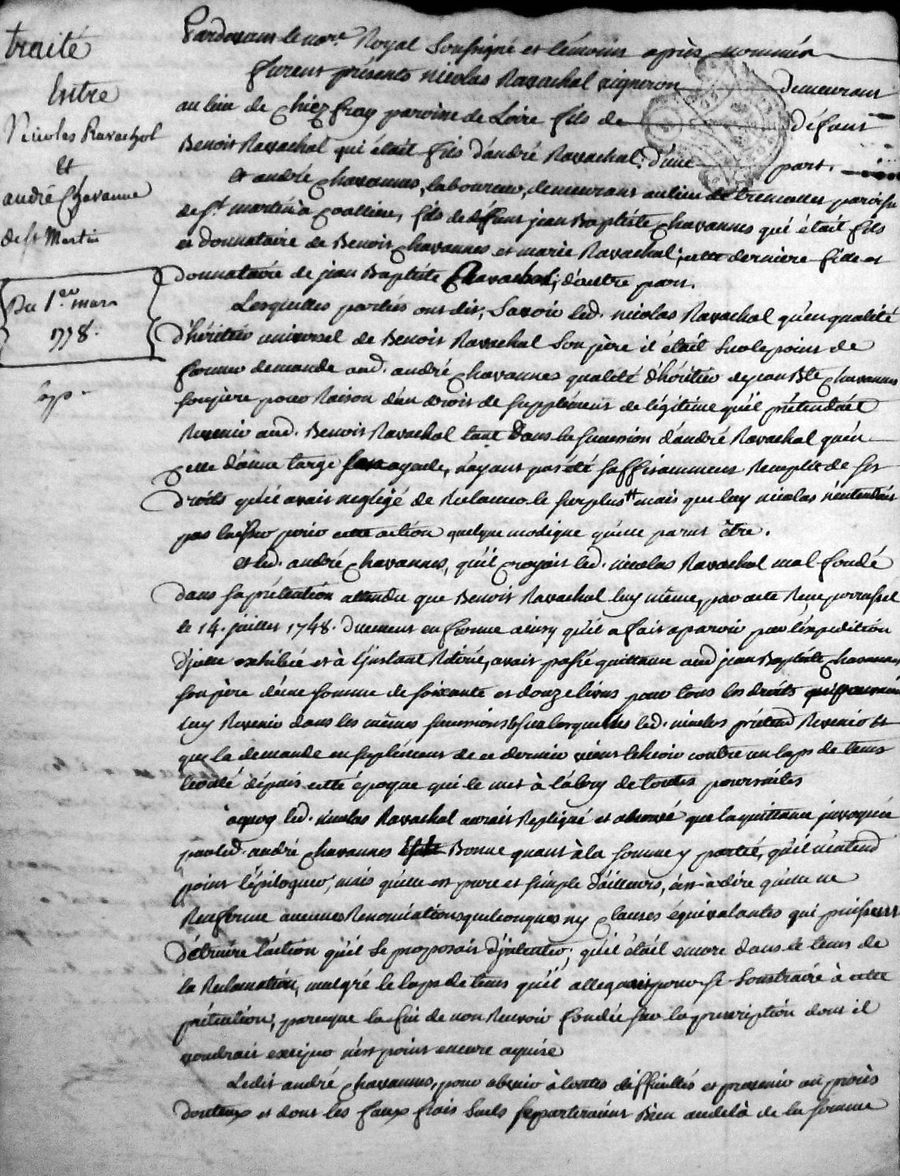 traité
Entre
Nicolas Ravachol
Et
andré Chavanne
de st Martin
Du 1.er mars
1778.
Pardevant le no.re Royal Soussigné et témoins après nommés
furent présents nicolas Ravachol vigneron demeurant
au lieu de Chez fray paroisse de Loire fils de défunt
Benoit Ravachol qui était fils d'andré Ravachol, d'une part.
et andré Chavannes, laboureur, demeurant au lieu de paroisse
de st martin a Coallieu, fils de défunt jean Baptiste Chavannes qui était fils
et donnataire de Benoit Chavannes et marie Ravachol; cette derniere fille et
donnataire de jean Baptiste Ravachol; d'autre part.
Lesquelles parties ont dit, Savoir led. nicolas Ravachol qu'en qualité
d'héritier universel de Benoit Ravachol Son père il était Sur le point de
former demande aud. andré Chavannes qualité d'héritier de jean Bte Chavannes
son père pour Raison d'un droit de Supplément de légitime qu'il prétendait
Revenir aud. Benoit Ravachol tant Dans la succession d'andré Ravachol qu'en
celle d'anne large ayeule, n'ayant pas été suffisamment Remplit de ses
droits qu'il avait négligé de Réclamer le surplus mais que luy nicolas n'entendait
pas laisser périr cette action quelque modique qu'elle parut être.
et led. andré Chavannes, qu'il croyait led. nicolas Ravachol mal fondé
dans sa prétention attendu que Benoit Ravachol luy même, par acte Reçu
le 14. juillet 1748. Duement en forme ainsy qu'il a fait aparoir par l'expédition
d'jcelle exhibée et à l'jnstant Retirée, avait passé quittance aud jean Baptiste Chavannes
son père d'une somme de soixante et douze livres pour tous les droits qui pouvaient
luy Revenir dans les mêmes successions sur lesquelles led. nicolas prétend Revenir et
que la demande en suplément de ce dernier vient échoir contre un laps de tems
écoulé depuis cette époque qui le met à l'abry de toutes poursuites
à quoy led. nicolas Ravachol aurait Repliqué et observé que la quittance jnvoquée
par led. andré Chavannes Bonne quant à la somme y portée, qu'il n'entend
point l'épiloguer, mais qu'elle est pure et simple d'ailleurs, c'est-à-dire qu'elle ne
Renferme aucunes Renonciations quelconques ny Clauses équivalantes qui puissent
détruire l'action qu'il se proposait d'jntenter; qu'il était encore dans le tems de
la Réclamation, malgré le laps de tems qu'il alleguait pour se Soustraire à cette
prétention, parceque la fin de non Recevoir fondée sur la prescription dont il
voudrait exciper n'est point encore aquise
Ledit andré Chavannes, pour obvier à toutes difficultés et prévenir un procès
douteux et dont les faux frais Seuls se porteraient Bien audelà de la somme